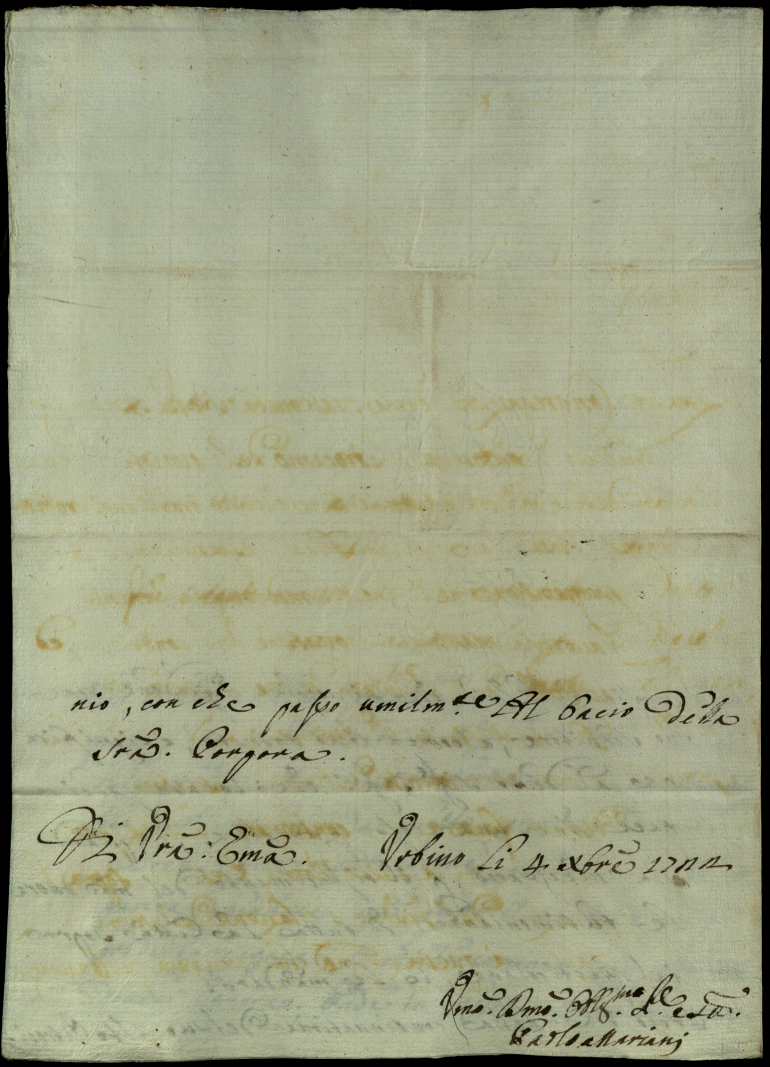 nio, con che passo umilm.te Al bacio della
Sra. Porpora.
Di Vra: Ema. Urbino li 4 Xbre 1744
Umo. Dmo. Obb.mo
Paolo Mariani